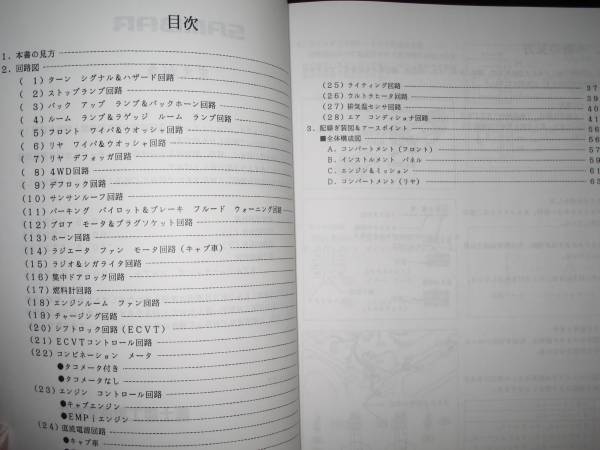 目次
1．本書の見方
2．回路図
（ 1）ターン シグナル＆ハザード回路
（ 2）ストップランプ回路
（ 3）バック アップ ランプ＆バックホーン回路
（ 4）ルーム ランプ＆ラゲッジ ルーム ランプ回路
（ 5）フロント ワイパ＆ウオッシャ回路
（ 6）リヤ ワイパ＆ウオッシャ回路
（ 7）リヤ デフォッガ回路
（ 8）4WD回路
（ 9）デフロック回路
（10）サンサンルーフ回路
（11）パーキング パイロット＆ブレーキ フルード ウォーニング回路
（12）ブロア モータ＆プラグソケット回路
（13）ホーン回路
（14）ラジエータ ファン モータ回路（キャブ車）
（15）ラジオ＆シガライタ回路
（16）集中ドアロック回路
（17）燃料計回路
（18）エンジンルーム ファン回路
（19）チャージング回路
（20）シフトロック回路（ECVT）
（21）ECVTコントロール回路
（22）コンビネーション メータ
●タコメータ付き
●タコメータなし
（23）エンジン コントロール回路
●キャブエンジン
●EMPiエンジン
（24）直流電源回路
●キャブ車
（25）ライティング回路 37
（26）ウルトラヒータ回路 39
（27）排気温センサ回路 40
（28）エア コンディショナ回路 41
3．配線ぎ装図＆アースポイント 56
■全体構成図 56
A．コンパートメント（フロント） 57
B．インストルメント パネル 59
C．エンジン＆ミッション 61
D．コンパートメント（リヤ） 63